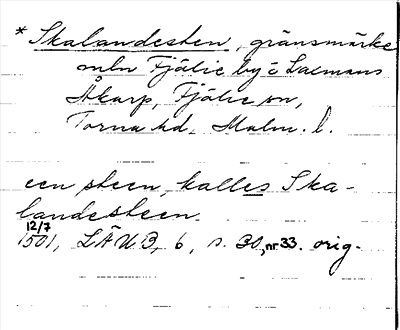 * Skalandesten, gränsmärke
mln Fjälie by o Laemans
Åkarp, Fjälie sn,
Torna hd. Malm. l.
een steen, kalles Ska-
landesteen.
12/7
1501, LÄUB, 6, s. 30, nr 33. orig.